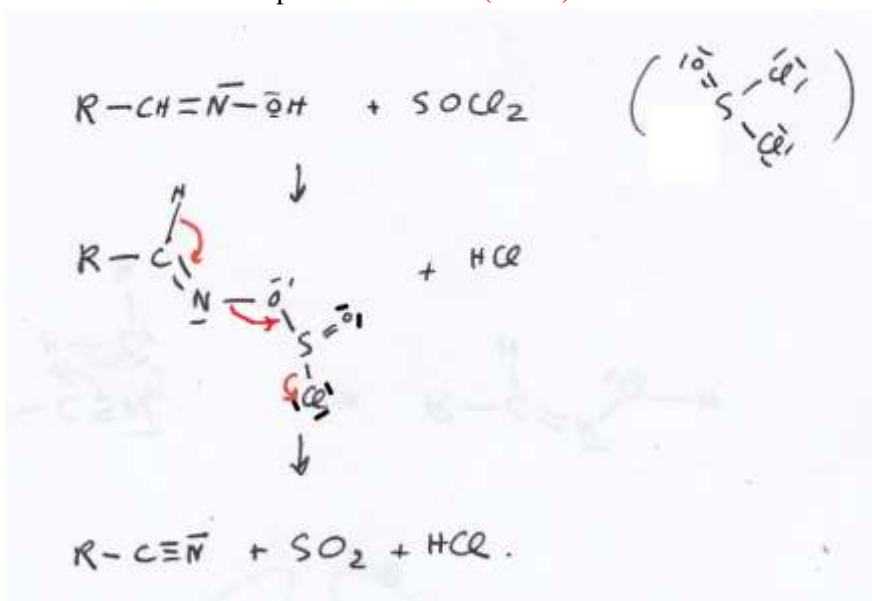 R-CH=N-OH + SOCl2 ( O=S Cl Cl )
↓
H
R-C + HCl
N-O O
S
Cl
↓
R-C≡N + SO2 + HCl.